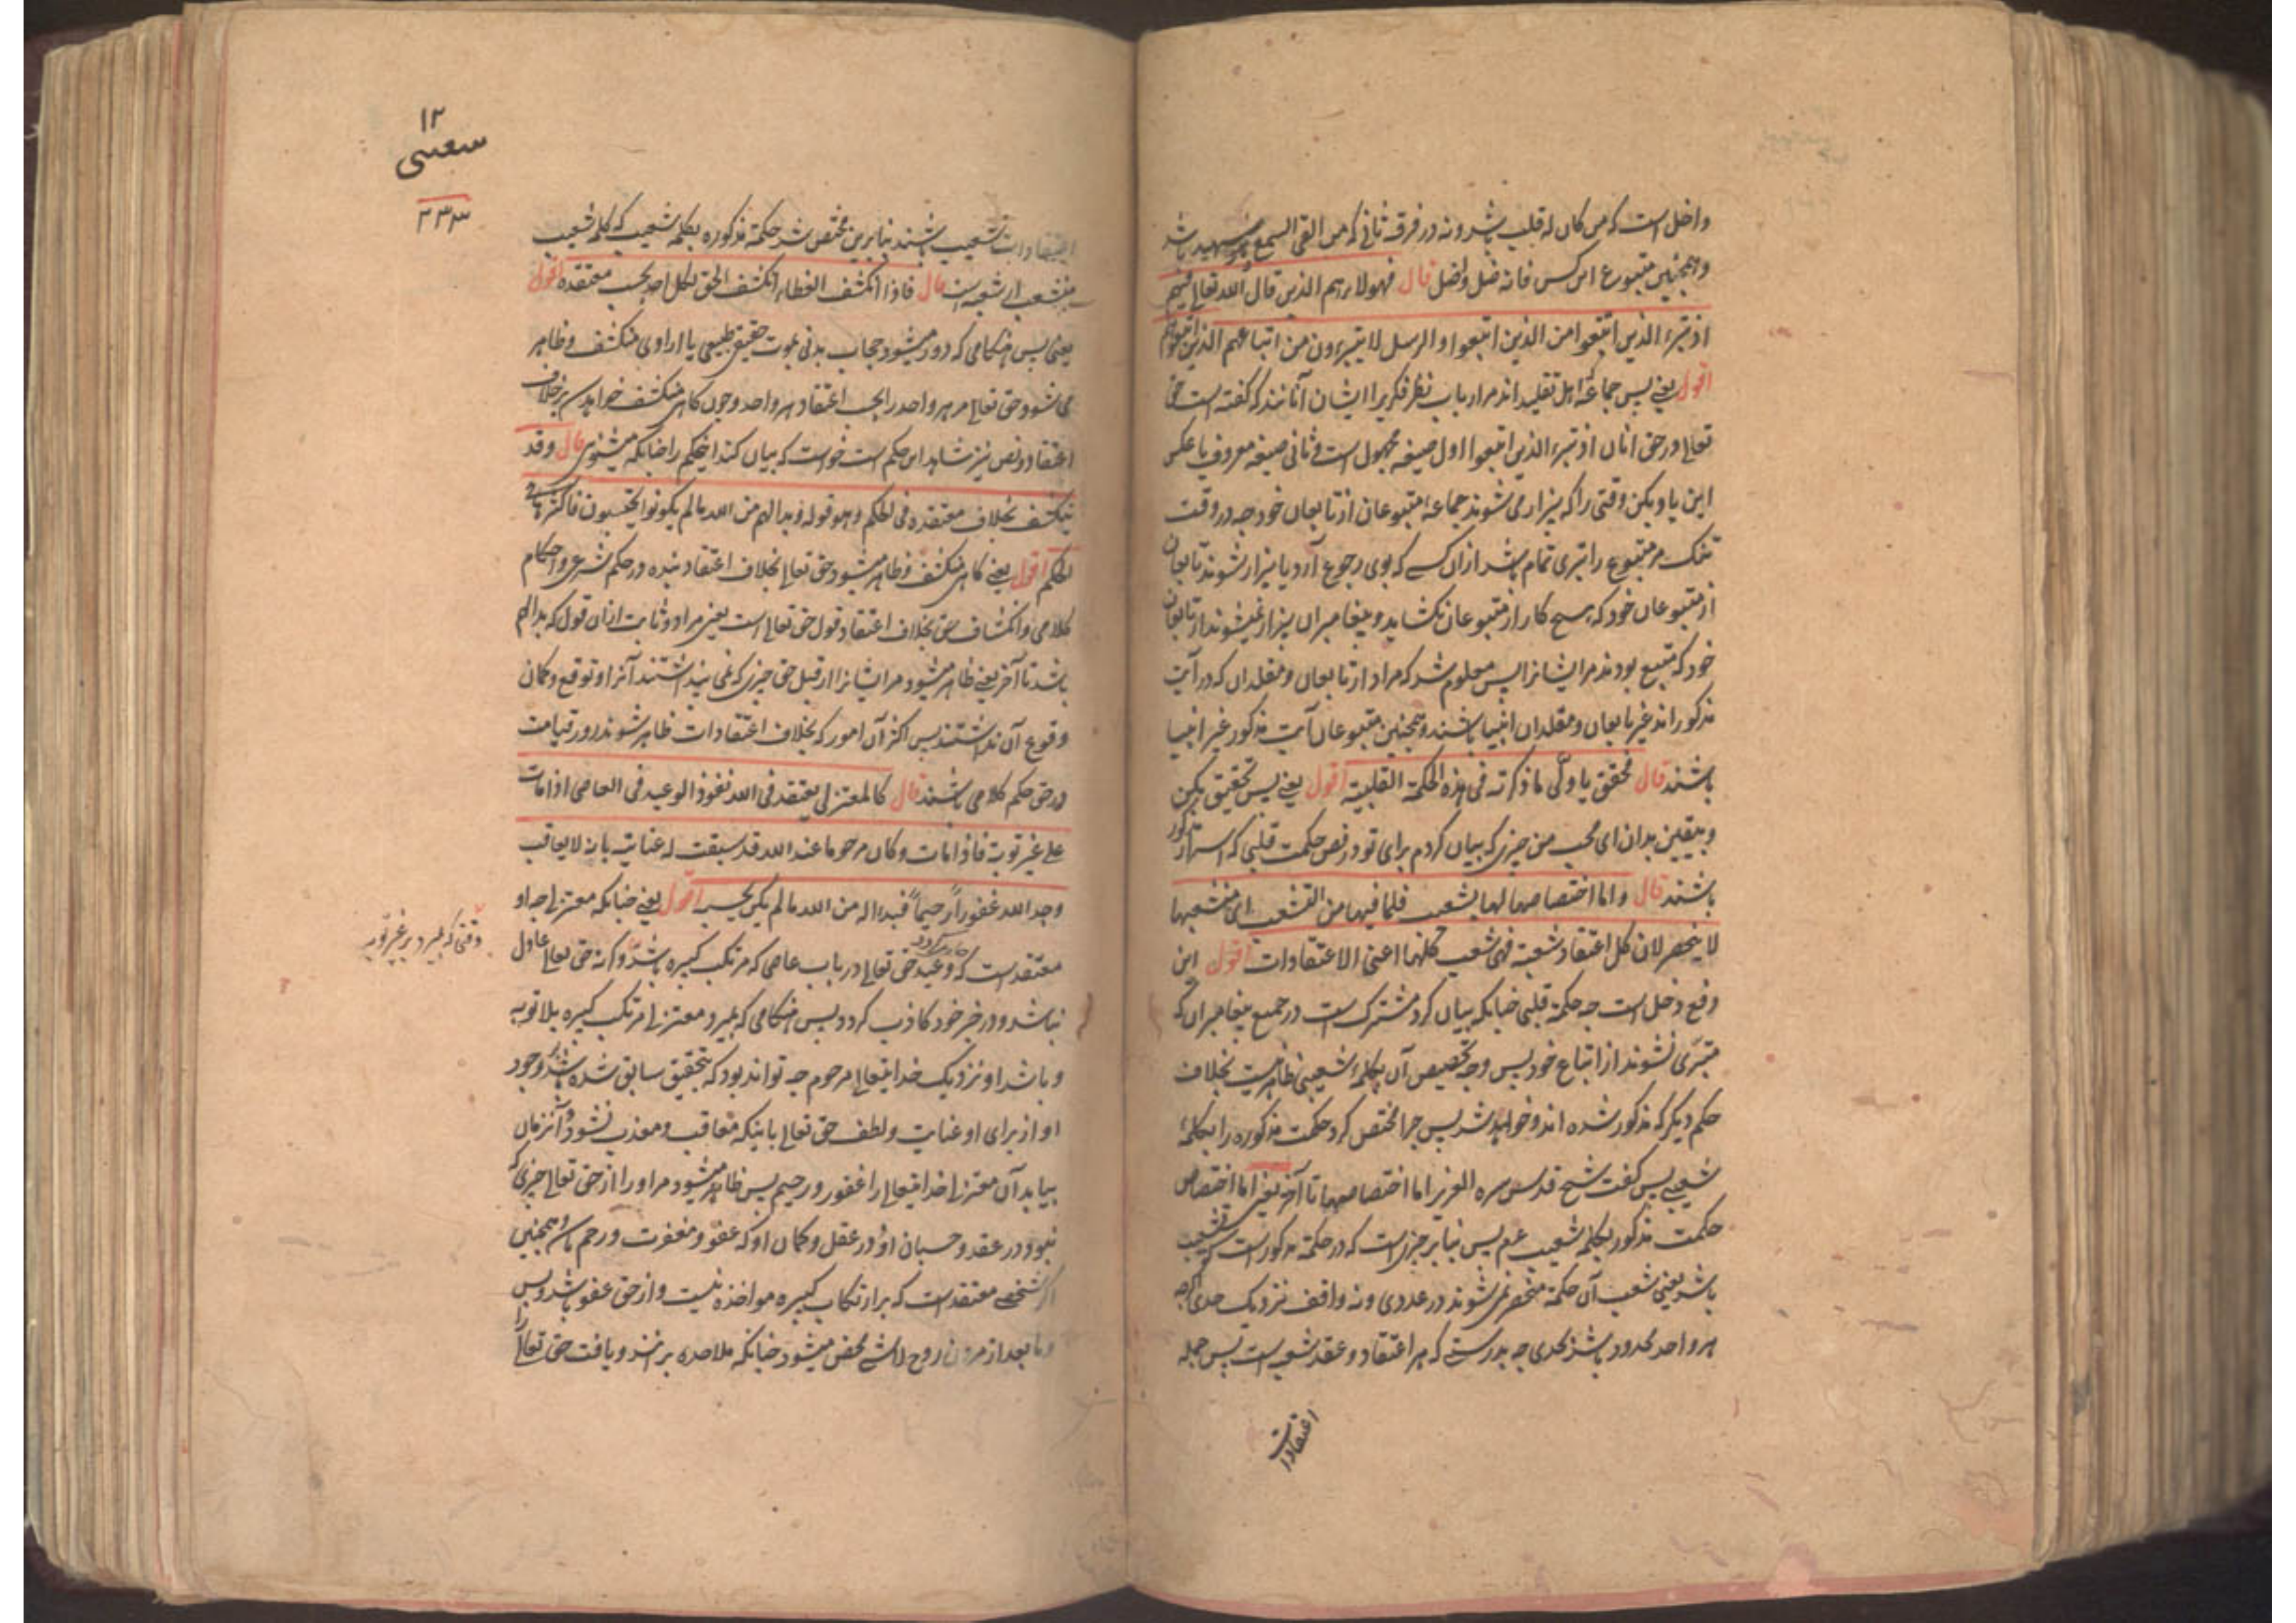 داخل است که من کان له قلب باشد و نه در فرقه ثانی که من القی السمع و هو شهید باشد
و همچنین متبوع این کس فانه ضل و اضل قال فهولاء هم الذین قال الله تعالی فیهم
اذ تبرء الذین اتبعوا من الذین اتبعوا و الرسل لا یتبرءون من اتباعهم الذین اتبعوهم
اقول یعنی پس جماعهٔ اهل تقلید اند مر ارباب نظر فکری را ایشان آنانند که گفته است حق
تعالی در حق انان اذ تبرء الذین اتبعوا اول صیغه مجهول است و ثانی صیغه معروف یا عکس
این یاد بکن وقتی را که بیزار می شوند جماعهٔ متبوعان از تابعان خود چه در وقت
مر متبوع را تبری تمام باشد ازان کسی که بوی رجوع آرد یا بیزار شوند تابعان
از متبوعان خود که هیچ کار از متبوعان نکشاید و پیغامبران بیزار نمیشوند از تابعان
خود که متبع بودند مر ایشانرا پس معلوم شد که مراد از تابعان و مقلدان که در آیت
مذکور اند غیر تابعان و مقلدان انبیا باشند و همچنین متبوعان آیت مذکور غیر انبیا
باشند قال فحقق یا ولی ما ذکرته فی هذه الحکمة القلبیة اقول یعنی پس تحقیق بکن
و بیقین بدان ای محب من چیزی که بیان کردم برای تو در فص حکمت قلبی که اسرار مذکور
باشند قال و اما اختصاصها لها بشعیب فلما فیها من التشعب ای شعبها
لا ینحصر لان کل اعتقاد شعبة فهی شعب کلها اعنی الاعتقادات اقول این
دفع دخل است چه حکمة قلبی چنانکه بیان کرد مشترک است در جمیع پیغامبران که
متبرّی نشوند از اتباع خود پس وجه تخصیص آن بکلمهٔ شعیبی ظاهر نیست بخلاف
حکم دیگر که مذکور شده اند و خواهد شد پس چرا مختص کرد حکمت مذکوره را بکلمهٔ
شعیبی پس گفت شیخ قدس سره العزیز اما اختصاصها تا آخر یعنی اما اختصاص
حکمت مذکور بکلمه شعیب عم پس بنا بر چیزی است که در حکمة مذکور است تشعیب
باشد یعنی شعب آن حکمة منحصر نمی شوند در عددی و نه واقف نزدیک حدی اگرچه
هر واحد محدود باشد بحدی چه بدرستی که هر اعتقاد و عقد شعبه است پس جمله
اعتقادات
۱۲
شعیبی
۳۳۳
اعتقادات تشعیب باشند بنابرین مختص شد حکمة مذکوره بکلمه شعیب که کلمه شعیب
قال فاذا انکشف الغطاء انکشف الحق لکل احد بحسب معتقده اقول
یعنی پس هنگامی که دور میشود حجاب بدنی بموت حقیقی طبیعی یا ارادی منکشف و ظاهر
می شود حق تعالی مر هر واحد را بحسب اعتقاد هر واحد و چون گاهی منکشف خواهد شد بر خلاف
اعتقاد و نص نیز شاهد این حکم است خواست که بیان کند اینحکم را چنانکه میشنوی قال و قد
ینکشف بخلاف معتقده فی الحکم و هو قوله و بدا لهم من الله ما لم یکونوا یحتسبون فاکثرها فی
الحکم اقول یعنی گاهی منکشف و ظاهر میشود حق تعالی بخلاف اعتقاد بنده در حکم شرعی و احکام
کلامی و انکشاف حق بخلاف اعتقاد قول حق تعالی است یعنی مراد و ثابت ازان قول که بدا لهم
باشد تا آخر یعنی ظاهر میشود مر ایشانرا از قبل حق چیزی که نمی پنداشتند آنرا و توقع و گمان
وقوع آن نداشتند پس اکثر آن امور که بخلاف اعتقادات ظاهر شوند در روز قیامت
در حق حکم کلامی باشند قال کالمعتزلی یعتقد فی الله نفوذ الوعید فی العاصی اذا مات
علی غیر توبة فاذا مات و کان مرحوما عند الله قد سبقت له عنایة بانه لا یعاقب
وجد الله غفوراً رحیماً فبدا له من الله ما لم یکن یحتسبه اقول یعنی چنانکه معتزلی چه او
معتقد است که وعید حق تعالی در باب عاصی که مرتکب کبیره باشد و گرنه حق تعالی عادل
وقتی که بمیرد بر غیر توبه
نباشد و در خبر خود کاذب گردد پس هنگامی که بمیرد معتزلی مرتکب کبیره بلا توبه
و باشد او نزدیک خدایتعالی مرحوم چه تواند بود که بتحقیق سابق شده باشد و وجود
او از برای او عنایت و لطف حق تعالی باینکه معاقب و معذب نشود و آنزمان
بیابد آن معتزلی خدایتعالی را غفور و رحیم پس ظاهر میشود مر او را از حق تعالی چیزی که
نبود در عقد و حسبان او و در عقل و گمان او که عفو و مغفرت و رحم باشد و همچنین
اگر شخصی معتقد است که بر ارتکاب کبیره مواخذه نیست و از حق عفو باشد و پس
و یا بعد از مردن روح لاشی محض میشود چنانکه ملاحده برانند و یافت حق تعالی را